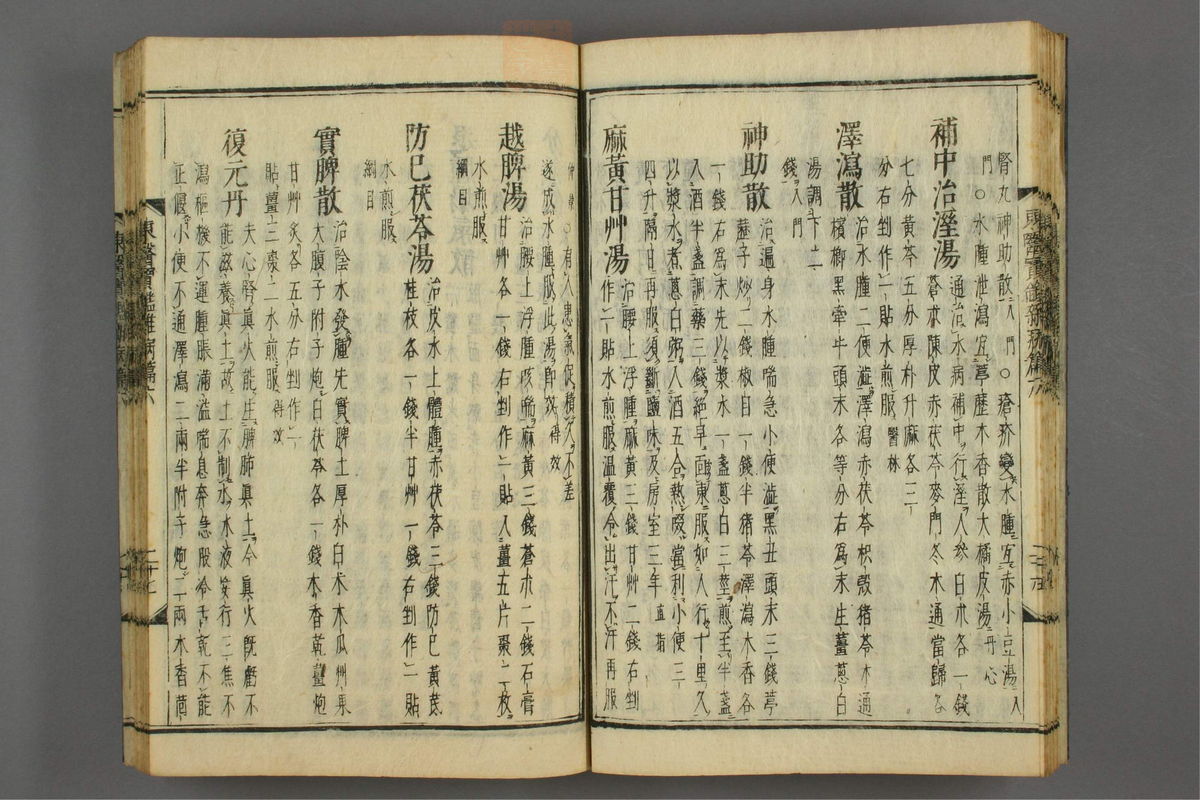 腎丸神助散入門○瘡疥變水腫宜赤小豆湯入
門○水腫泄瀉宜葶藶木香散大橘皮湯丹心
補中治濕湯通治水病補中行濕人參白朮各一錢
蒼朮陳皮赤茯苓麥門冬木通當歸各
七分黃芩五分厚朴升麻各三
分右剉作一貼水煎服醫林
澤瀉散治水腫二便澁澤瀉赤茯苓枳殼猪苓木通
檳榔黑牽牛頭末各等分右爲末生薑蔥白
湯調下二
錢入門
神助散治遍身水腫喘急小便澁黑丑頭末三錢葶
藶子炒二錢椒目一錢半猪苓澤瀉木香各
一錢右爲末先以漿水一盞蔥白三莖煎至半盞
入酒半盞調藥三錢絶早面東服如人行十里久
以漿水煮蔥白粥入酒五合熱啜當利小便三
四升隔日再服須斷鹽味及房室三年直指
麻黃甘艸湯治腰上浮腫麻黃三錢甘艸二錢右剉
作一貼水煎服溫覆令出汗不汗再服
仲景○有人患氣促積久不差
遂成水腫服此湯卽效得效
越脾湯治腰上浮腫咳喘麻黃三錢蒼朮二錢石膏
甘艸各一錢右剉作一貼入薑五片棗二枚
水煎服
綱目
防己茯苓湯治皮水士體腫赤茯苓三錢防己黃芪
桂枝各一錢半甘艸一錢右剉作一貼
水煎服
綱目
實脾散治陰水發腫先實脾土厚朴白朮木瓜艸果
大腹子附子炮白茯苓各一錢木香乾薑炮
甘艸炙各五分右剉作一
貼薑三棗二水煎服得效
復元丹夫心腎眞火能生脾肺眞土今眞火旣虧不
能滋養眞土故土不制水水液妄行三焦不
瀉樞機不運腫脹滿溢喘息奔急股冷舌乾不能
正偃小便不通澤瀉二兩半附子炮二兩木香茴